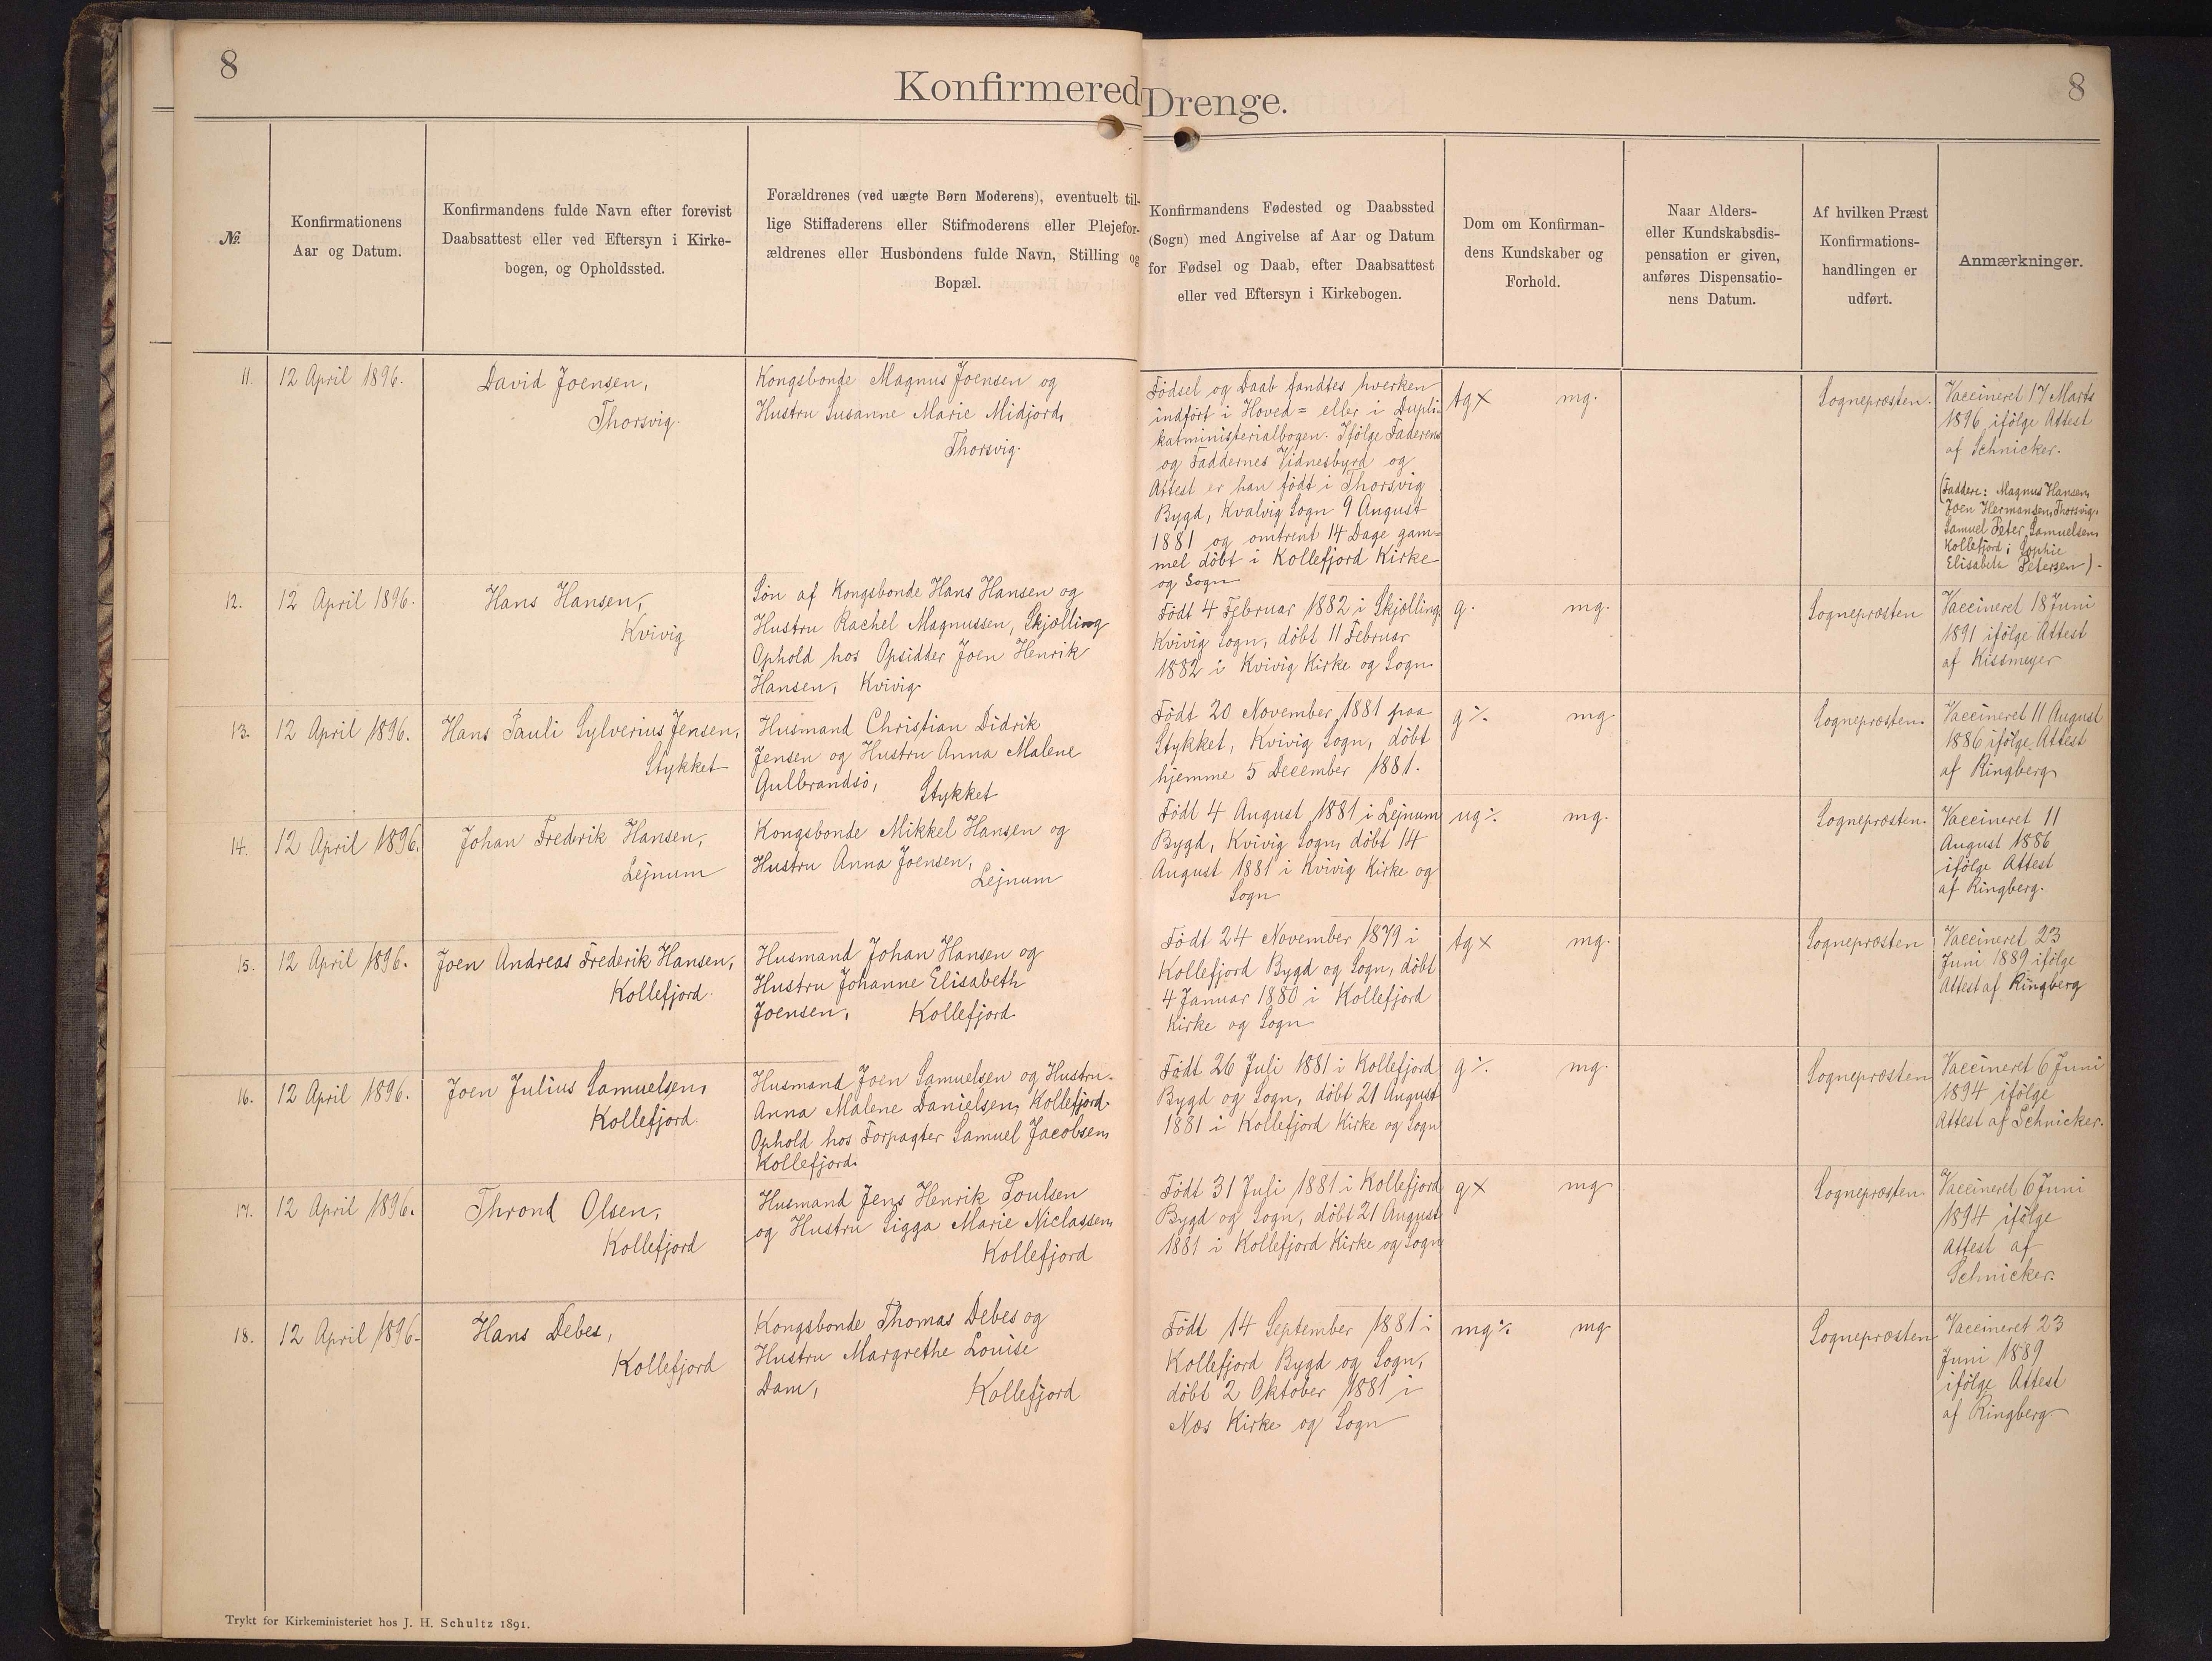 8
Konfirmered
Drenge.
8
№
Konfirmationens
Aar og Datum.
Konfirmandens fulde Navn efter forevist
Daabsattest eller ved Eftersyn i Kirke-
bogen, og Opholdssted.
Forældrenes (ved uægte Børn Moderens), eventuelt til-
lige Stiffaderens eller Stifmoderens eller Plejefor-
ældrenes eller Husbondens fulde Navn, Stilling og
Bopæl.
Konfirmandens Fødested og Daabssted
(Sogn) med Angivelse af Aar og Datum
for Fødsel og Daab, efter Daabsattest
eller ved Eftersyn i Kirkebogen.
Dom om Konfirman-
dens Kundskaber og
Forhold.
Naar Alders-
eller Kundskabsdis-
pensation er given,
anføres Dispensatio-
nens Datum.
Af hvilken Præst
Konfirmations-
handlingen er
udført.
Anmærkninger.
11.
12 April 1896.
David Joensen,
Thorsvig.
Kongsbonde Magnus Joensen og
Hustru Susanne Marie Midjord,
Thorsvig.
Födsel og Daab fandtes hverken
indfört i Hoved= eller i Dupli-
katministerialbogen. Ifölge Faderens
og Faddernes Vidnesbyrd og
Attest er han födt i Thorsvig
Bygd, Kvalvig Sogn 9 August
1881 og omtrent 14 Dage gam=
mel döbt i Kollefjord Kirke
og Sogn
tg×
mg.
Sognepræsten.
Vaccineret 17 Marts
1896 ifölge Attest
af Schnicker.
(Faddere: Magnus Hansen,
Joen Hermansen, Thorsvig.
Samuel Peter Samuelsen,
Kollefjord; Sophie
Elisabeth Petersen).
12.
12 April 1896.
Hans Hansen,
Kvivig
Sön af Kongsbonde Hans Hansen og
Hustru Rachel Magnussen, Skjælling
Ophold hos Opsidder Joen Henrik
Hansen, Kvivig
Födt 4 Februar 1882 i Skjælling,
Kvivig Sogn, döbt 11 Februar
1882 i Kvivig Kirke og Sogn
g.
mg.
Sognepræsten
Vaccineret 18 Juni
1891 ifölge Attest
af Kissmeyer
13.
12 April 1896.
Hans Pauli Sylverius Jensen,
Stykket
Husmand Christian Didrik
Jensen og Hustru Anna Malene
Gulbrandsö, Stykket
Födt 20 November 1881 paa
Stykket, Kvivig Sogn, döbt
hjemme 5 December 1881.
g ÷
mg
Sognepræsten.
Vaccineret 11 August
1886 ifölge Attest
af Ringberg
14.
12 April 1896.
Johan Frederik Hansen,
Lejnum
Kongsbonde Mikkel Hansen og
Hustru Anna Joensen,
Lejnum
Födt 4 August 1881 i Lejnum
Bygd, Kvivig Sogn, döbt 14
August 1881 i Kvivig Kirke og
Sogn
ug ÷
mg.
Sognepræsten.
Vaccineret 11
August 1886
ifölge Attest
af Ringberg.
15.
12 April 1896.
Joen Andreas Frederik Hansen,
Kollefjord.
Husmand Johan Hansen og
Hustru Johanne Elisabeth
Joensen, Kollefjord.
Födt 24 November 1879 i
Kollefjord Bygd og Sogn, döbt
4 Januar 1880 i Kollefjord
Kirke og Sogn
tg×
mg.
Sognepræsten
Vaccineret 23
Juni 1889 ifölge
Attest af Ringberg
16.
12 April 1896.
Joen Julius Samuelsen,
Kollefjord.
Husmand Joen Samuelsen og Hustru
Anna Malene Danielsen, Kollefjord.
Ophold hos Forpagter Samuel Jacobsen,
Kollefjord.
Födt 26 Juli 1881 i Kollefjord
Bygd og Sogn, döbt 21 August
1881 i Kollefjord Kirke og Sogn
g ÷
mg.
Sognepræsten
Vaccineret 6 Juni
1894 ifölge
Attest af Schnicker.
17.
12 April 1896.
Thrond Olsen,
Kollefjord
Husmand Jens Henrik Poulsen
og Hustru Sigga Marie Niclassen,
Kollefjord
Födt 31 Juli 1881 i Kollefjord
Bygd og Sogn, döbt 21 August
1881 i Kollefjord Kirke og Sogn
g×
mg
Sognepræsten
Vaccineret 6 Juni
1894 ifölge
Attest af
Schnicker.
18.
12 April 1896.
Hans Debes,
Kollefjord
Kongsbonde Thomas Debes og
Hustru Margrethe Louise
Dam, Kollefjord
Födt 14 September 1881 i
Kollefjord Bygd og Sogn,
döbt 2 Oktober 1881 i
Næs Kirke og Sogn
mg ÷
mg
Sognepræsten
Vaccineret 23
Juni 1889
ifölge Attest
af Ringberg
Trykt for Kirkeministeriet hos J. H. Schultz 1891.